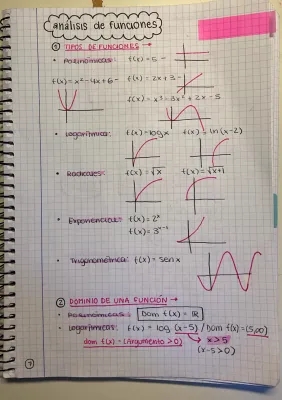 análisis de funciones
① TIPOS DE FUNCIONES →
• Polinómicas: f(x) = 5 -
f(x) = x² - 4x + 6 - f(x) = 2x + 3 -
f(x) = x³ - 3x² + 2x - 5
• Logarítmica: f(x) = log x f(x) = ln (x-2)
• Radicales: f(x) = √x f(x) = √x+1
• Exponencial: f(x) = 2ˣ
f(x) = 3ˣ⁻²
• Trigonométrica: f(x) = sen x
② DOMINIO DE UNA FUNCIÓN →
• Polinómicas: Dom f(x) = ℝ
• Logarítmicas: f(x) = log (x-5) / Dom f(x) = (5,∞)
dom f(x) = (Argumento > 0) → x > 5
(x-5 > 0)